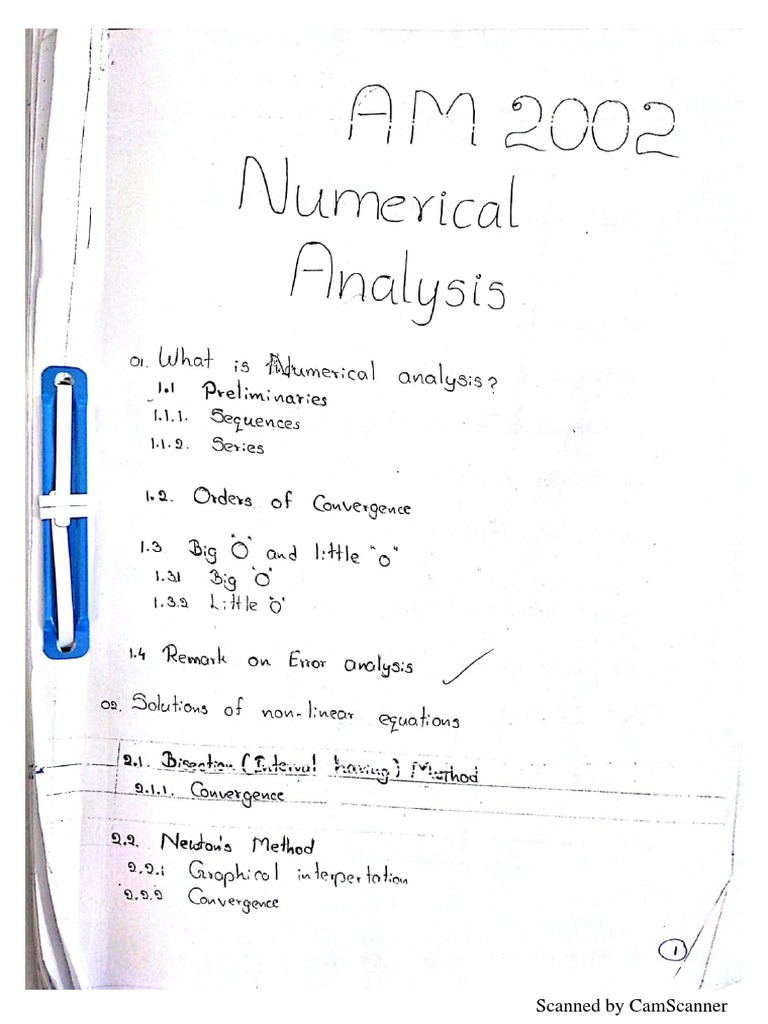 AM 2002
Numerical
Analysis
01. What is Numerical analysis?
1.1 Preliminaries
1.1.1. Sequences
1.1.2. Series
1.2. Orders of Convergence
1.3 Big "O" and little "o"
1.31 Big "O"
1.3.2 Little "O"
1.4 Remark on Error analysis
02. Solutions of non-linear equations
2.1. Bisection (Interval having) Method
2.1.1. Convergence
2.2. Newton's Method
2.2.1 Graphical interpertation
2.2.2 Convergence
1
Scanned by CamScanner